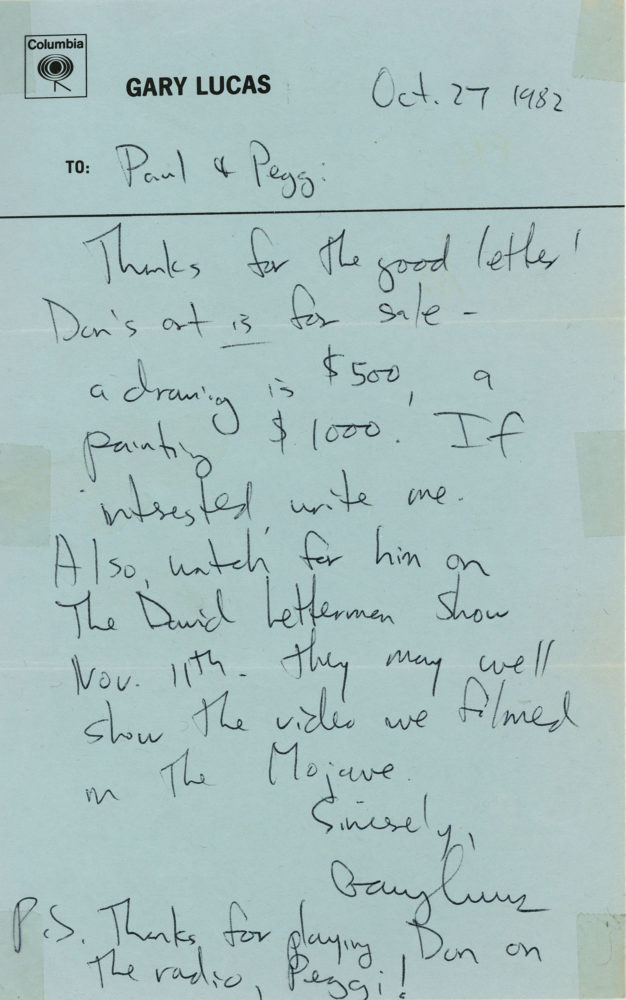 Columbia
GARY LUCAS
Oct. 27 1982
TO: Paul & Peggi
Thanks for the good letter!
Don's art is for sale -
a drawing is $500, a
painting $1000. If
intrested, write me.
Also, watch for him on
The David Letterman Show
Nov. 11th. They may well
show the video we filmed
in the Mojave.
Sincerely,
Gary Lucas
P.S. Thanks for playing Don on
the radio, Peggi!